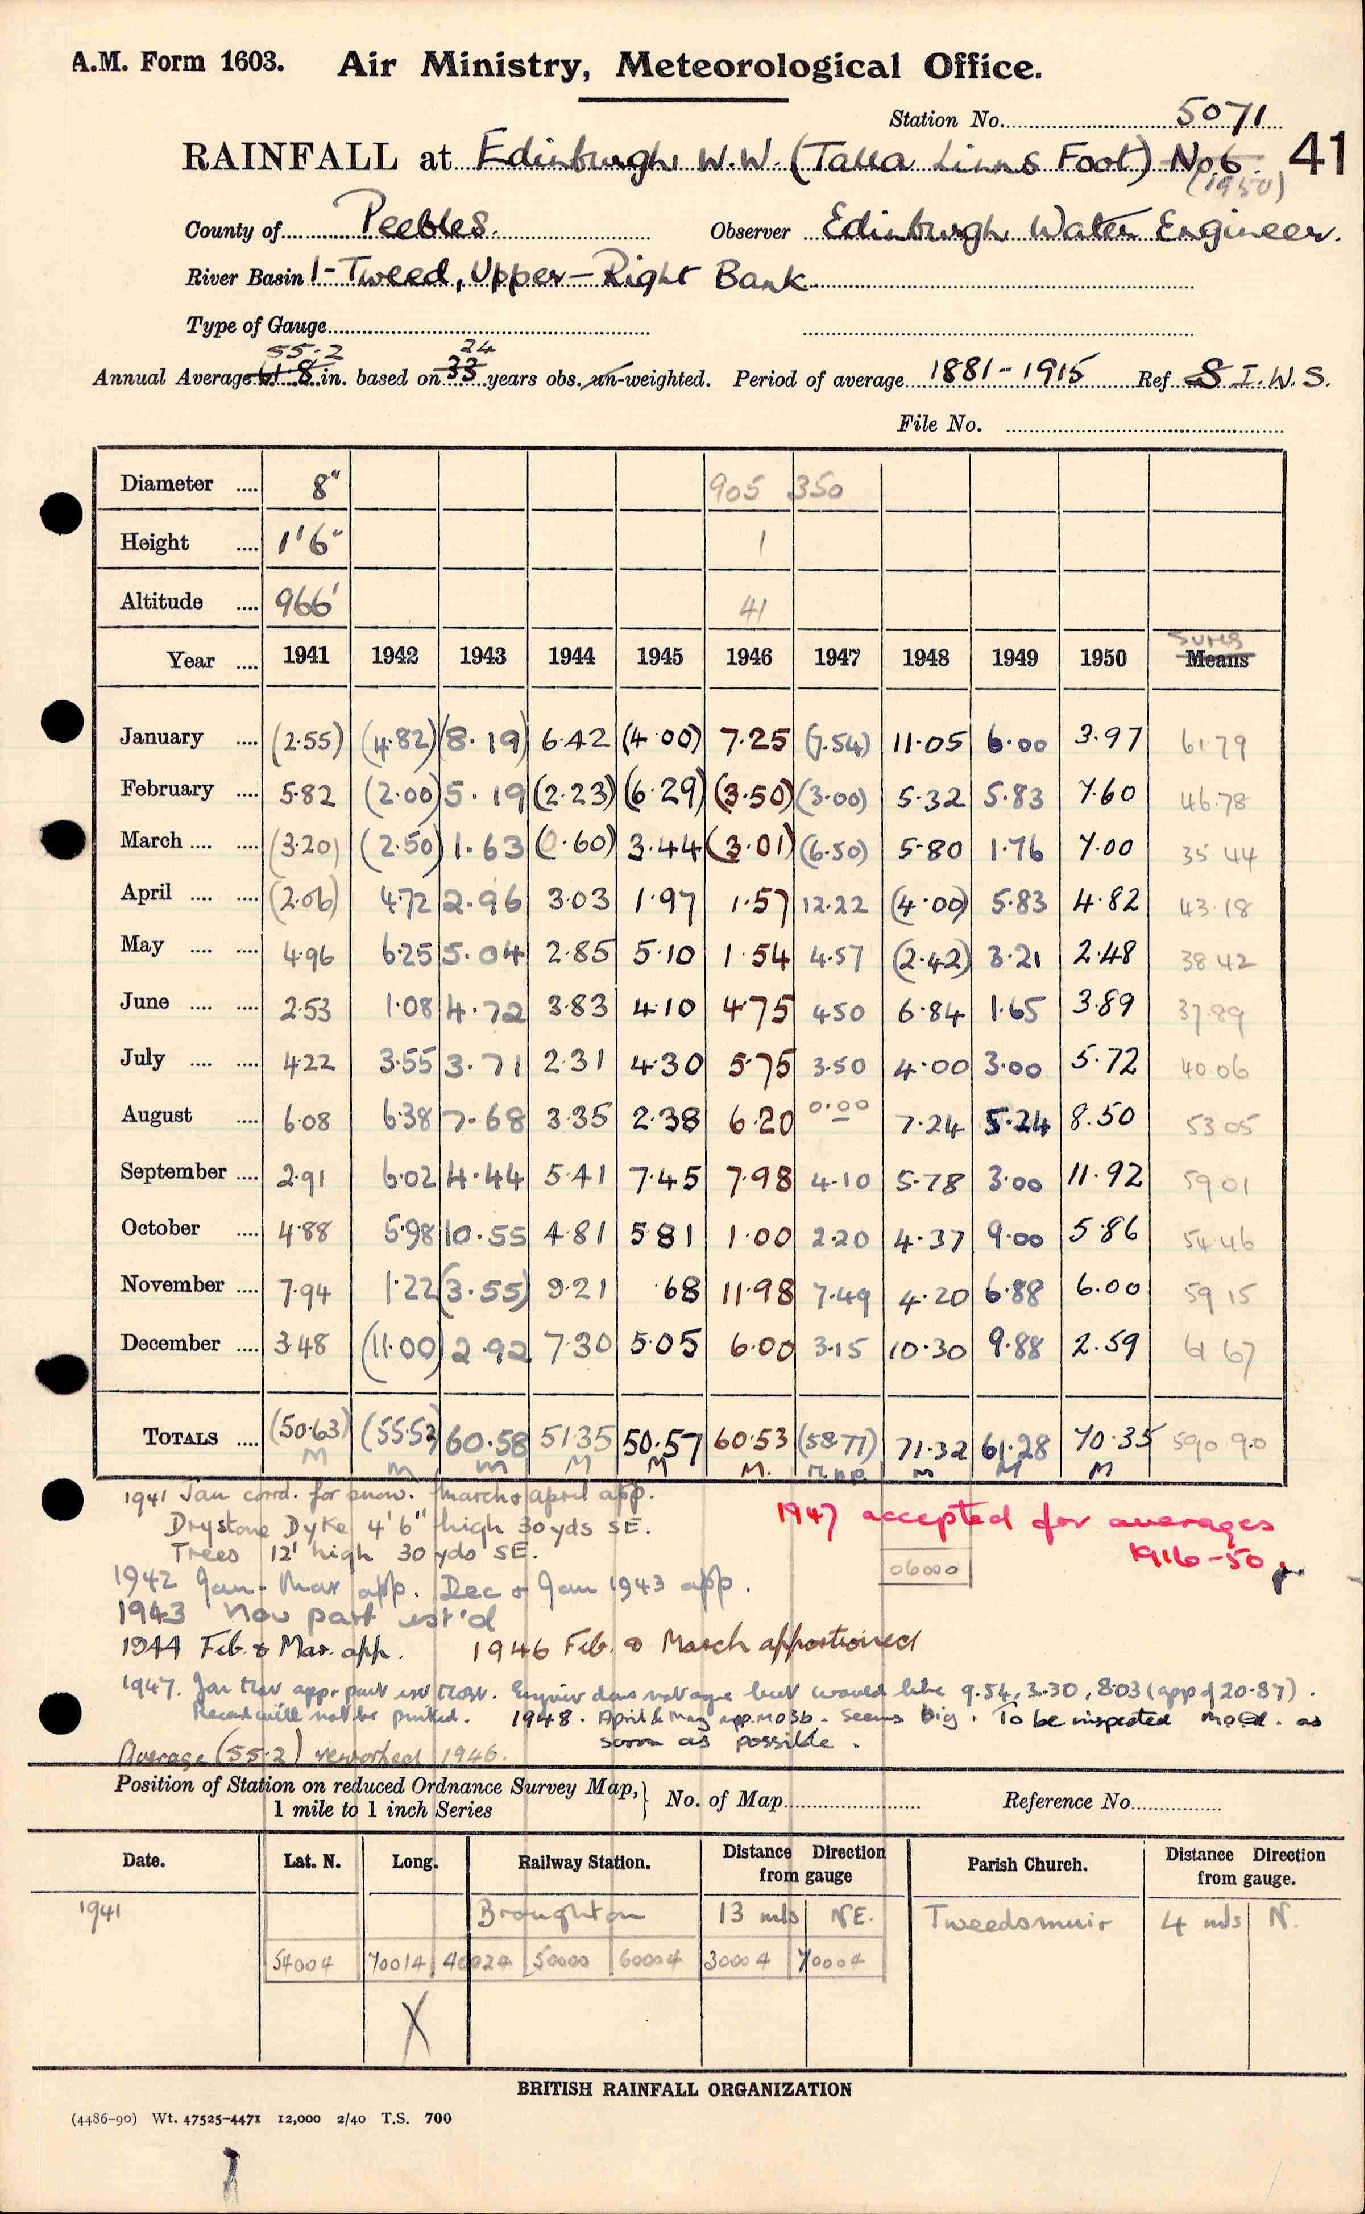 A.M. Form 1603. Air Ministry, Meteorological Office.
Station No. 5071
RAINFALL at Edinburgh W.W. (Talla Linns Foot) No.6 41
(1950)
County of Peebles. Observer Edinburgh Water Engineer.
River Basin 1-Tweed, Upper - Right Bank
Type of Gauge
55.2 24
Annual Average 61.8 in. based on 33 years obs. un-weighted. Period of average 1881-1915 Ref S I.W.S.
File No.
Diameter .... 8" 905 350
Height .... 1'6" 1
Altitude .... 966' 41
Sums
Year .... 1941 1942 1943 1944 1945 1946 1947 1948 1949 1950 Means
January .... (2.55) (4.82) (8.19) 6.42 (4.00) 7.25 (7.54) 11.05 6.00 3.97 61.79
February .... 5.82 (2.00) 5.19 (2.23) (6.29) (3.50) (3.00) 5.32 5.83 7.60 46.78
March .... .... (3.20) (2.50) 1.63 (0.60) 3.44 (3.01) (6.50) 5.80 1.76 7.00 35.44
April .... .... (2.06) 4.72 2.96 3.03 1.97 1.57 12.22 (4.00) 5.83 4.82 43.18
May .... .... 4.96 6.25 5.04 2.85 5.10 1.54 4.57 (2.42) 3.21 2.48 38.42
June .... .... 2.53 1.08 4.72 3.83 4.10 4.75 4.50 6.84 1.65 3.89 37.89
July .... .... 4.22 3.55 3.71 2.31 4.30 5.75 3.50 4.00 3.00 5.72 40.06
August .... 6.08 6.38 7.68 3.35 2.38 6.20 0.00 7.24 5.24 8.50 53.05
September .... 2.91 6.02 4.44 5.41 7.45 7.98 4.10 5.78 3.00 11.92 59.01
October .... 4.88 5.98 10.55 4.81 5.81 1.00 2.20 4.37 9.00 5.86 54.46
November .... 7.94 1.22 (3.55) 9.21 .68 11.98 7.49 4.20 6.88 6.00 59.15
December .... 3.48 (11.00) 2.92 7.30 5.05 6.00 3.15 10.30 9.88 2.59 61.67
TOTALS .... (50.63) (55.52) 60.58 51.35 50.57 60.53 (58.77) 71.32 61.28 70.35 590.90
M M M M M M. M M M
1941 Jan corrd. for snow. March & April app.
Drystone Dyke 4'6" high 30yds SE.
Trees 12' high 30 yds SE.
1947 accepted for averages
1916-50.
06000
1942 Jan - Mar app. Dec & Jan 1943 app.
1943 Nov part est'd
1944 Feb. & Mar. app. 1946 Feb. & March apportioned
1947. Jan Mar app. part est Engineer does not agree but would like 9.54, 3.30, 8.03 (app of 20.87).
Record will not be printed. 1948. April & May app. Seems big. To be inspected as
soon as possible.
Average (55.2) reworked 1946.
Position of Station on reduced Ordnance Survey Map, } No. of Map Reference No.
1 mile to 1 inch Series
Date. Lat. N. Long. Railway Station. Distance Direction from gauge Parish Church. Distance Direction from gauge.
1941 Broughton 13 mls NE. Tweedsmuir 4 mls N.
54004 70014 40024 50000 60004 30004 70004
X
BRITISH RAINFALL ORGANIZATION
(4486-90) Wt. 47525-4471 12,000 2/40 T.S. 700